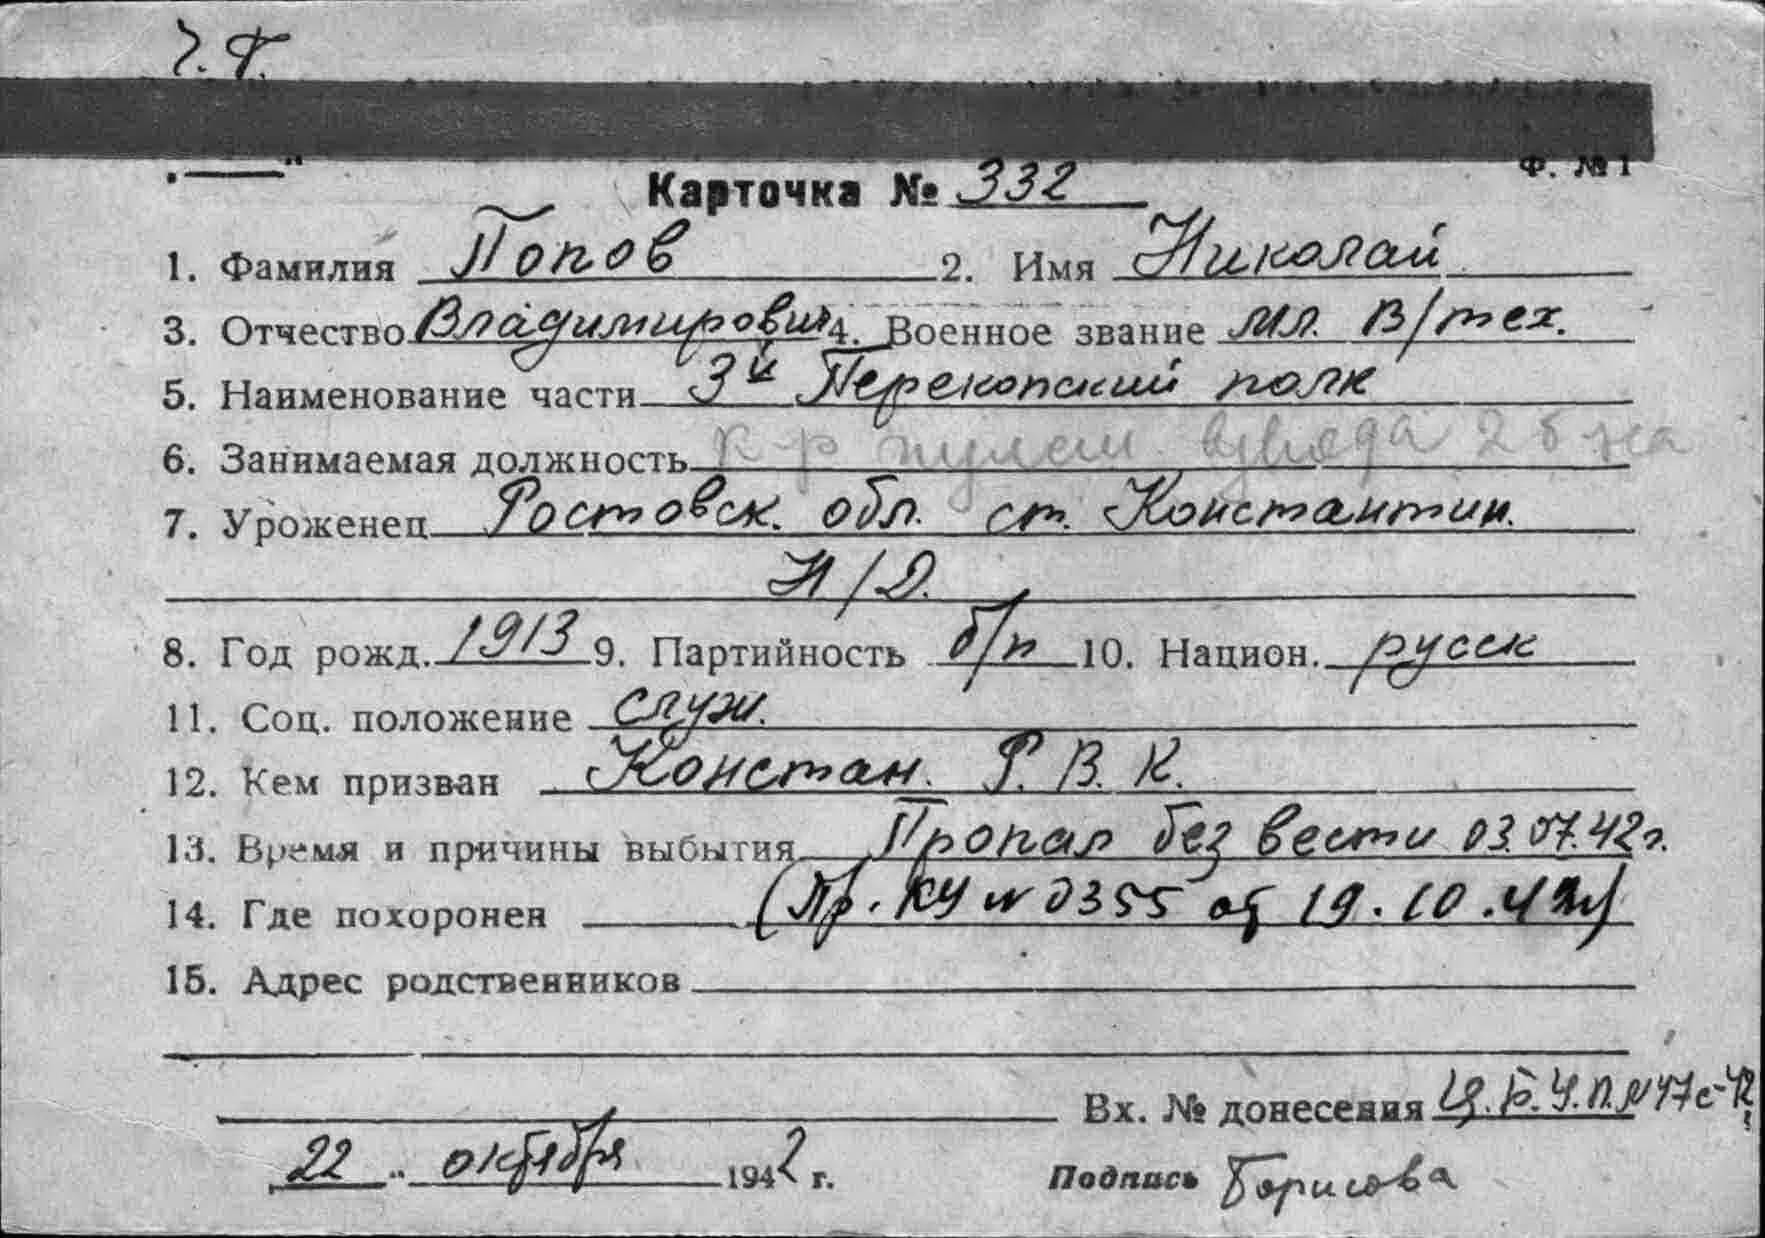 Ч.Ф.
Ф. № 1
Карточка № 332
1. Фамилия Попов 2. Имя Николай
3. Отчество Владимирович 4. Военное звание мл. в/тех.
5. Наименование части 3й Перекопский полк
6. Занимаемая должность к-р пулем. взвода 2 б-на
7. Уроженец Ростовск. обл. ст. Константин.
Н/Д.
8. Год рожд. 1913 9. Партийность б/п 10. Национ. русск
11. Соц. положение служ.
12. Кем призван Констан. Р.В.К.
13. Время и причины выбытия Пропал без вести 03.07.42г.
14. Где похоронен (Пр. КЧ № 0355 от 19.10.42г)
15. Адрес родственников
Вх. № донесения Ц.Б.У.П. № 47с-42
22 " октября 1942 г. Подпись Борисова